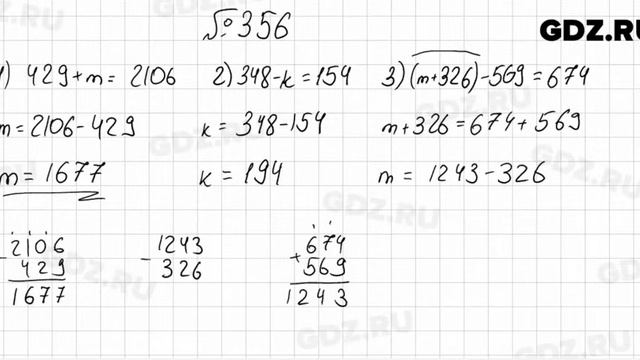 №356
GDZ.RU
1) 429+m= 2106
m=2106-429
m=1677
2) 348-k=154
k=348-154
k=194
3) (m+326)-569=674
m+326=674+569
m= 1243-326
2106
- 429
1677
1243
- 326
674
+ 569
1243
GDZ.RU
GDZ.RU
GDZ.RU
GDZ.RU
GDZ.RU